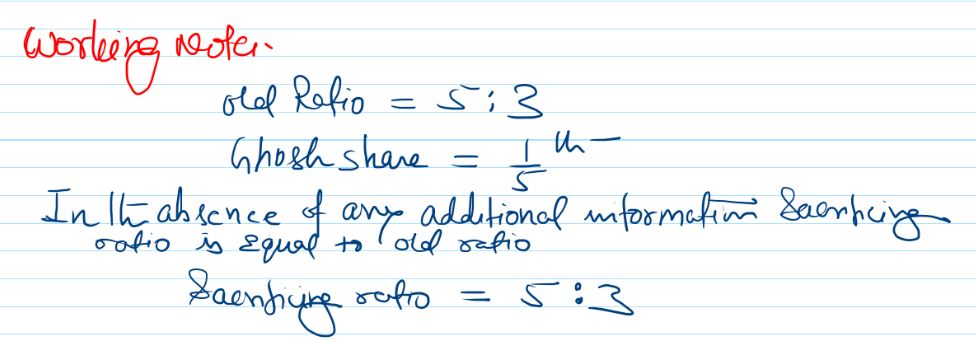 Working Notes.
Old Ratio = 5:3
Ghosh share = 1/5 th
In the absence of any additional information Sacrificing
ratio is equal to old ratio
Sacrificing ratio = 5:3